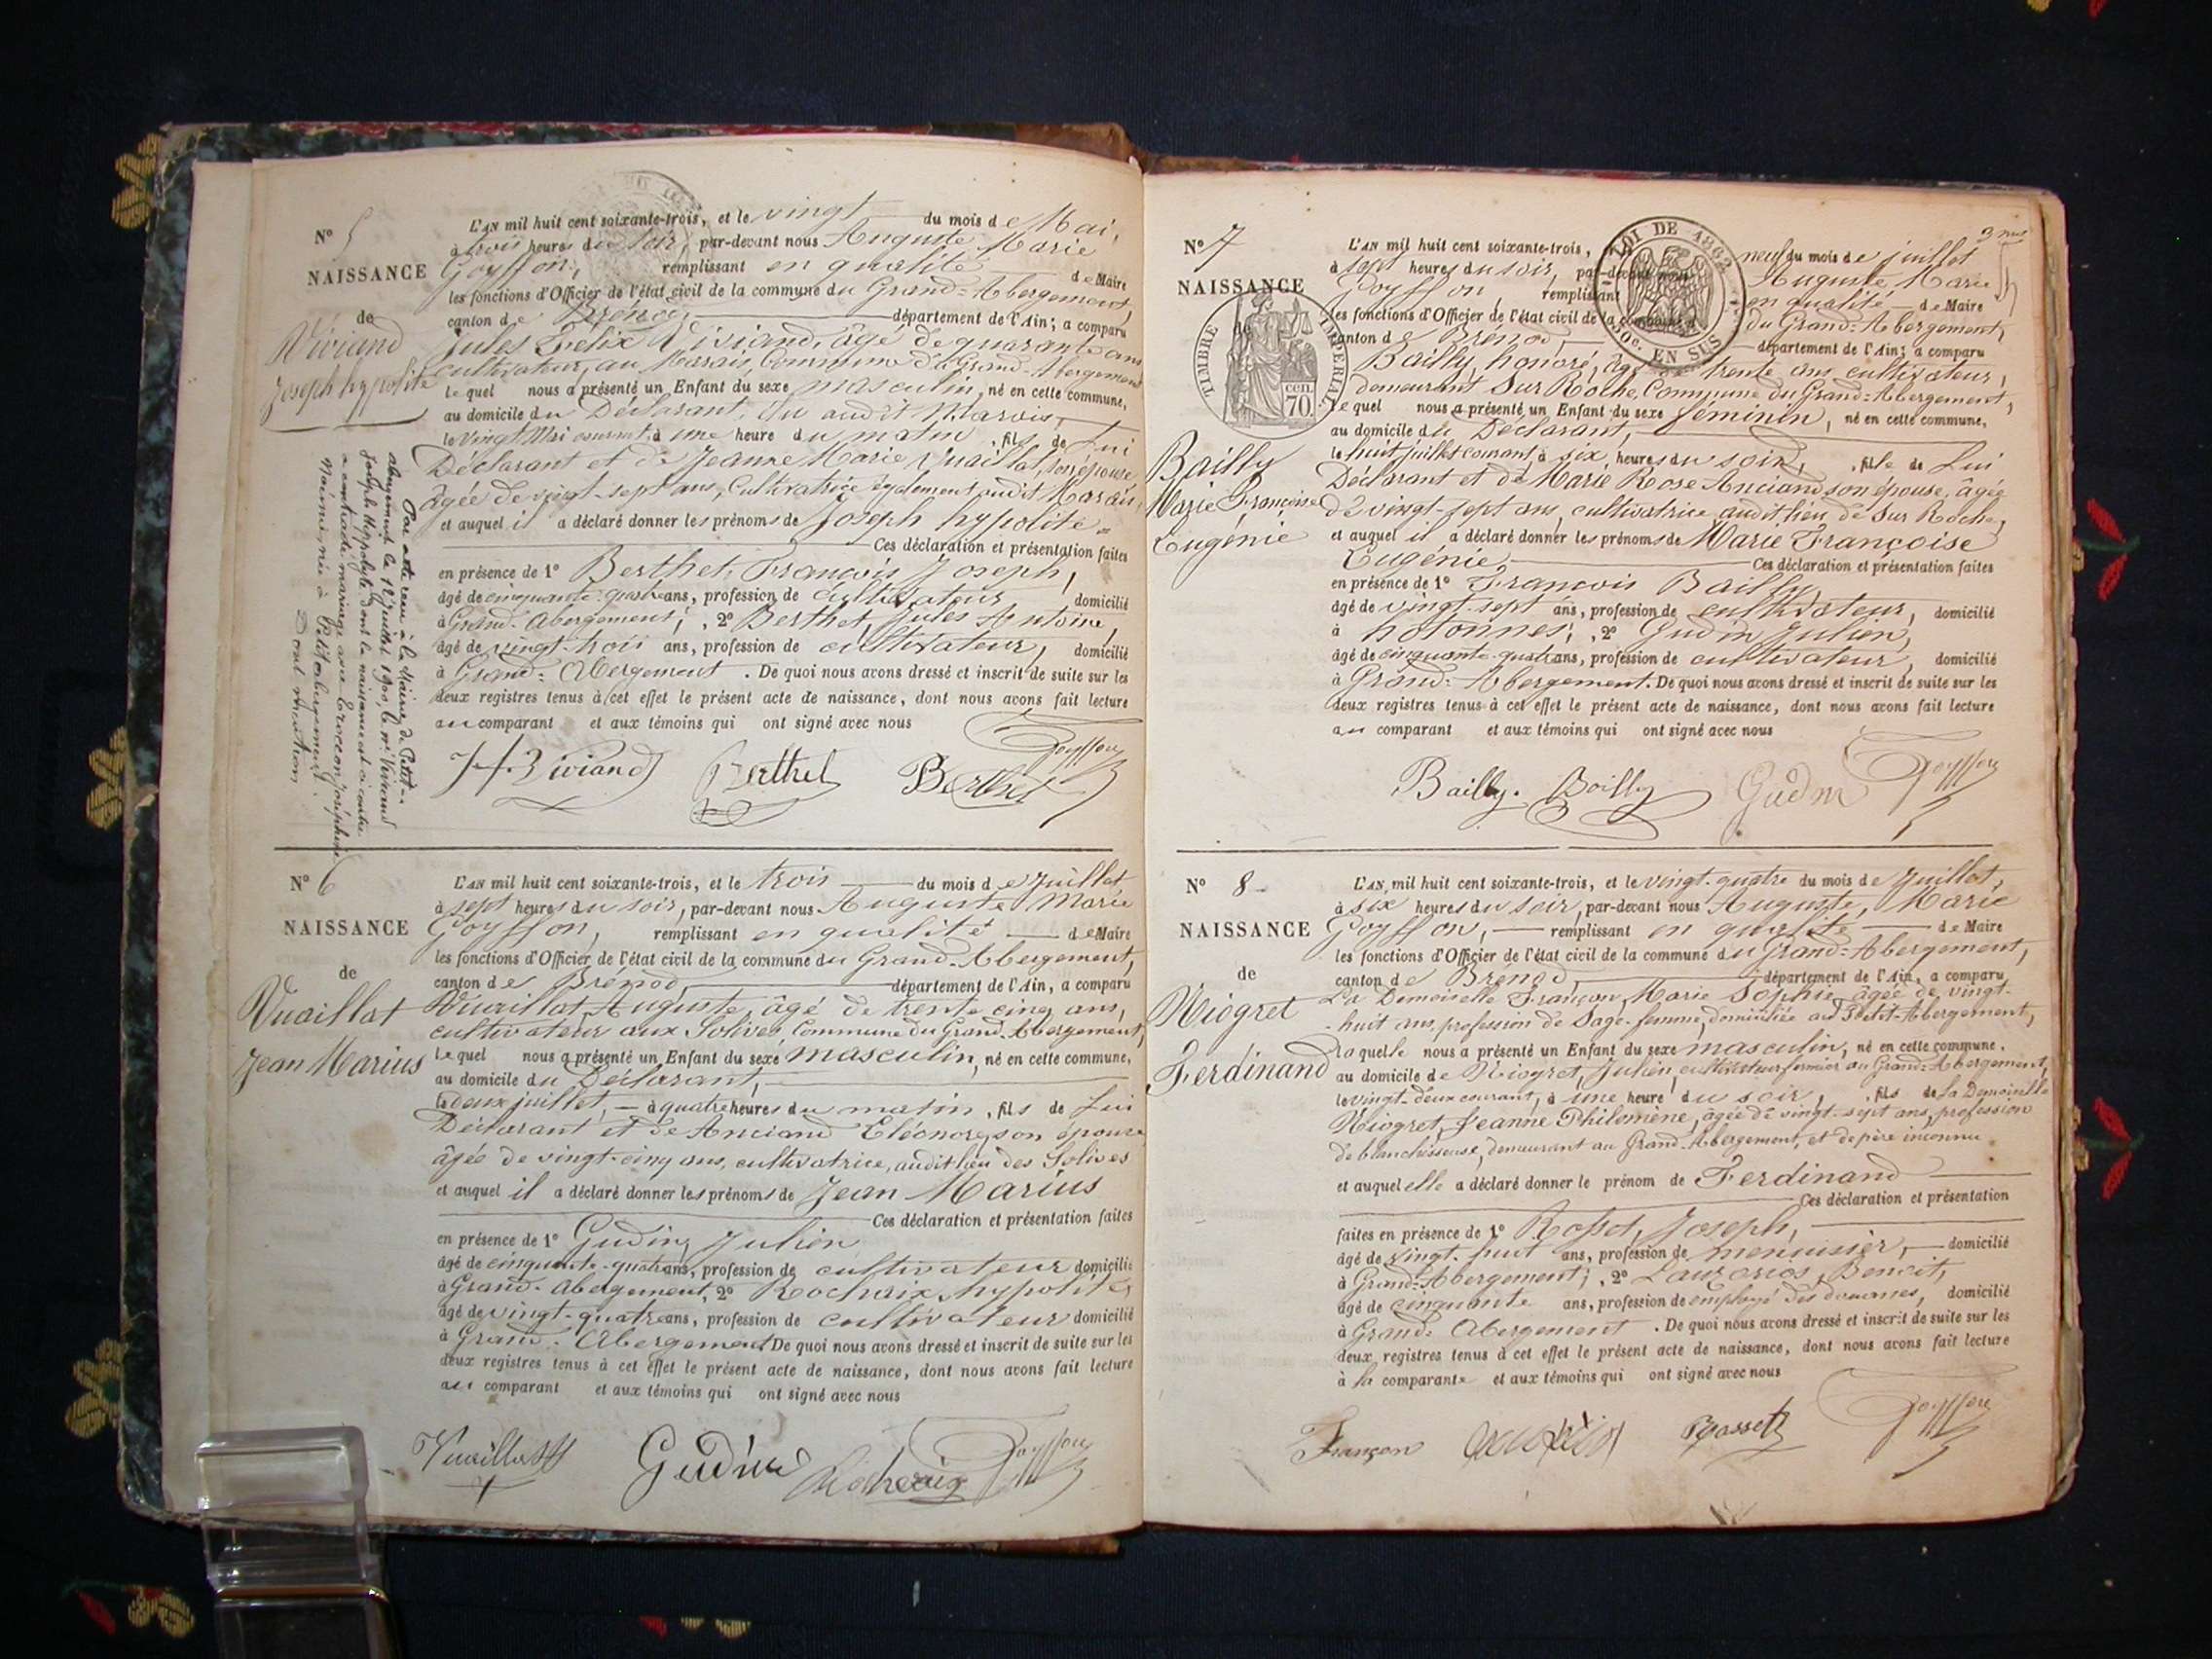 N° 5
NAISSANCE
de
Viviand
Joseph hypolite
L'AN mil huit cent soixante-trois, et le vingt du mois de Mai,
à trois heures du soir, par-devant nous Auguste Marie
Goyffon, remplissant en qualité de Maire
les fonctions d'Officier de l'état civil de la commune du Grand-Abergement,
canton de Brénod, département de l'Ain; a comparu
Jules Felix Viviand, âgé de quarante ans
cultivateur, au Marais, Commune du Grand-Abergement
le quel nous a présenté un Enfant du sexe masculin, né en cette commune,
au domicile du Déclarant, au audit Marais,
le vingt Mai courant, à une heure du matin, fils de Lui
Déclarant et de Jeanne Marie Vuaillat, son épouse,
âgée de vingt-sept ans, Cultivatrice également audit Marais,
et auquel il a déclaré donner les prénoms de Joseph hypolite
Ces déclaration et présentation faites
en présence de 1° Berthet, François Joseph,
âgé de cinquante-quatre ans, profession de cultivateur domicilié
à Grand-Abergement; 2° Berthet, Jules Antoine,
âgé de vingt-trois ans, profession de cultivateur, domicilié
à Grand-Abergement. De quoi nous avons dressé et inscrit de suite sur les
deux registres tenus à cet effet le présent acte de naissance, dont nous avons fait lecture
au comparant et aux témoins qui ont signé avec nous
Viviand Berthet Berthet Goyffon
Par acte reçu à la Mairie de Petit-
abergement le 12 juillet 1900, le Sr Viviand
Joseph Hyppolyte dont la naissance est ci contre
a contracté mariage avec Joséphine
née à Petit abergement.
Dont mention
N° 6
NAISSANCE
de
Vuaillat
Jean Marius
L'AN mil huit cent soixante-trois, et le trois du mois de Juillet
à sept heures du soir, par-devant nous Auguste Marie
Goyffon, remplissant en qualité de Maire
les fonctions d'Officier de l'état civil de la commune du Grand-Abergement,
canton de Brénod, département de l'Ain, a comparu
Vuaillat Auguste, âgé de trente cinq ans,
cultivateur aux Solives, Commune du Grand-Abergement,
le quel nous a présenté un Enfant du sexe masculin, né en cette commune,
au domicile du Déclarant,
le deux juillet, à quatre heures du matin, fils de Lui
Déclarant et de Anciand Eléonore, son épouse
âgée de vingt-cinq ans, cultivatrice, audit lieu des Solives
et auquel il a déclaré donner les prénoms de Jean Marius
Ces déclaration et présentation faites
en présence de 1° Gudin, Julien
âgé de cinquante-quatre ans, profession de cultivateur domicilié
à Grand-Abergement, 2° Rochaix, hypolite,
âgé de vingt-quatre ans, profession de cultivateur domicilié
à Grand-Abergement De quoi nous avons dressé et inscrit de suite sur les
deux registres tenus à cet effet le présent acte de naissance, dont nous avons fait lecture
au comparant et aux témoins qui ont signé avec nous
Vuaillat Gudin Rochaix Goyffon
N° 7
NAISSANCE
de
TIMBRE IMPERIAL
cen. 70.
LOI DE 1862
EN SUS
Bailly
Marie Françoise
Eugénie
L'AN mil huit cent soixante-trois, neuf du mois de juillet
à sept heures du soir, par-devant nous Auguste Marie
Goyffon, remplissant en qualité de Maire
les fonctions d'Officier de l'état civil de la commune du Grand-Abergement,
canton de Brénod, département de l'Ain; a comparu
Bailly, honoré, âgé de trente ans cultivateur,
demeurant Sur Roche, Commune du Grand-Abergement,
le quel nous a présenté un Enfant du sexe féminin, né en cette commune,
au domicile du Déclarant,
le huit juillet courant, à six heures du soir, fille de Lui
Déclarant et de Marie Rose Anciand son épouse, âgée
de vingt-sept ans, cultivatrice audit lieu de Sur Roche,
et auquel il a déclaré donner les prénoms de Marie Françoise
Eugénie Ces déclaration et présentation faites
en présence de 1° François Bailly,
âgé de vingt-sept ans, profession de cultivateur, domicilié
à hotonnes; 2° Gudin Julien,
âgé de cinquante-quatre ans, profession de cultivateur, domicilié
à Grand-Abergement. De quoi nous avons dressé et inscrit de suite sur les
deux registres tenus à cet effet le présent acte de naissance, dont nous avons fait lecture
au comparant et aux témoins qui ont signé avec nous
Bailly. Bailly Gudin Goyffon
N° 8
NAISSANCE
de
Niogret
Ferdinand
L'AN mil huit cent soixante-trois, et le vingt-quatre du mois de Juillet,
à six heures du soir, par-devant nous Auguste, Marie
Goyffon, remplissant en qualité de Maire
les fonctions d'Officier de l'état civil de la commune du Grand-Abergement,
canton de Brénod, département de l'Ain, a comparu
La Demoiselle Françon, Marie Sophie, âgée de vingt-
huit ans, profession de Sage-femme, domiciliée au Petit-Abergement,
la quelle nous a présenté un Enfant du sexe masculin, né en cette commune.
au domicile de Niogret, Julien, cultivateur fermier au Grand-Abergement,
le vingt-deux courant, à une heure du soir, fils de la Demoiselle
Niogret, Jeanne Philomène, âgée de vingt-sept ans, profession
de blanchisseuse, demeurant au Grand-Abergement, et de père inconnu.
et auquel elle a déclaré donner le prénom de Ferdinand
Ces déclaration et présentation
faites en présence de 1° Rosset, Joseph,
âgé de vingt-huit ans, profession de menuisier, domicilié
à Grand-Abergement; 2° Benoît,
âgé de cinquante ans, profession de employé des douanes, domicilié
à Grand-Abergement. De quoi nous avons dressé et inscrit de suite sur les
deux registres tenus à cet effet le présent acte de naissance, dont nous avons fait lecture
à la comparante et aux témoins qui ont signé avec nous
Françon Rosset Goyffon